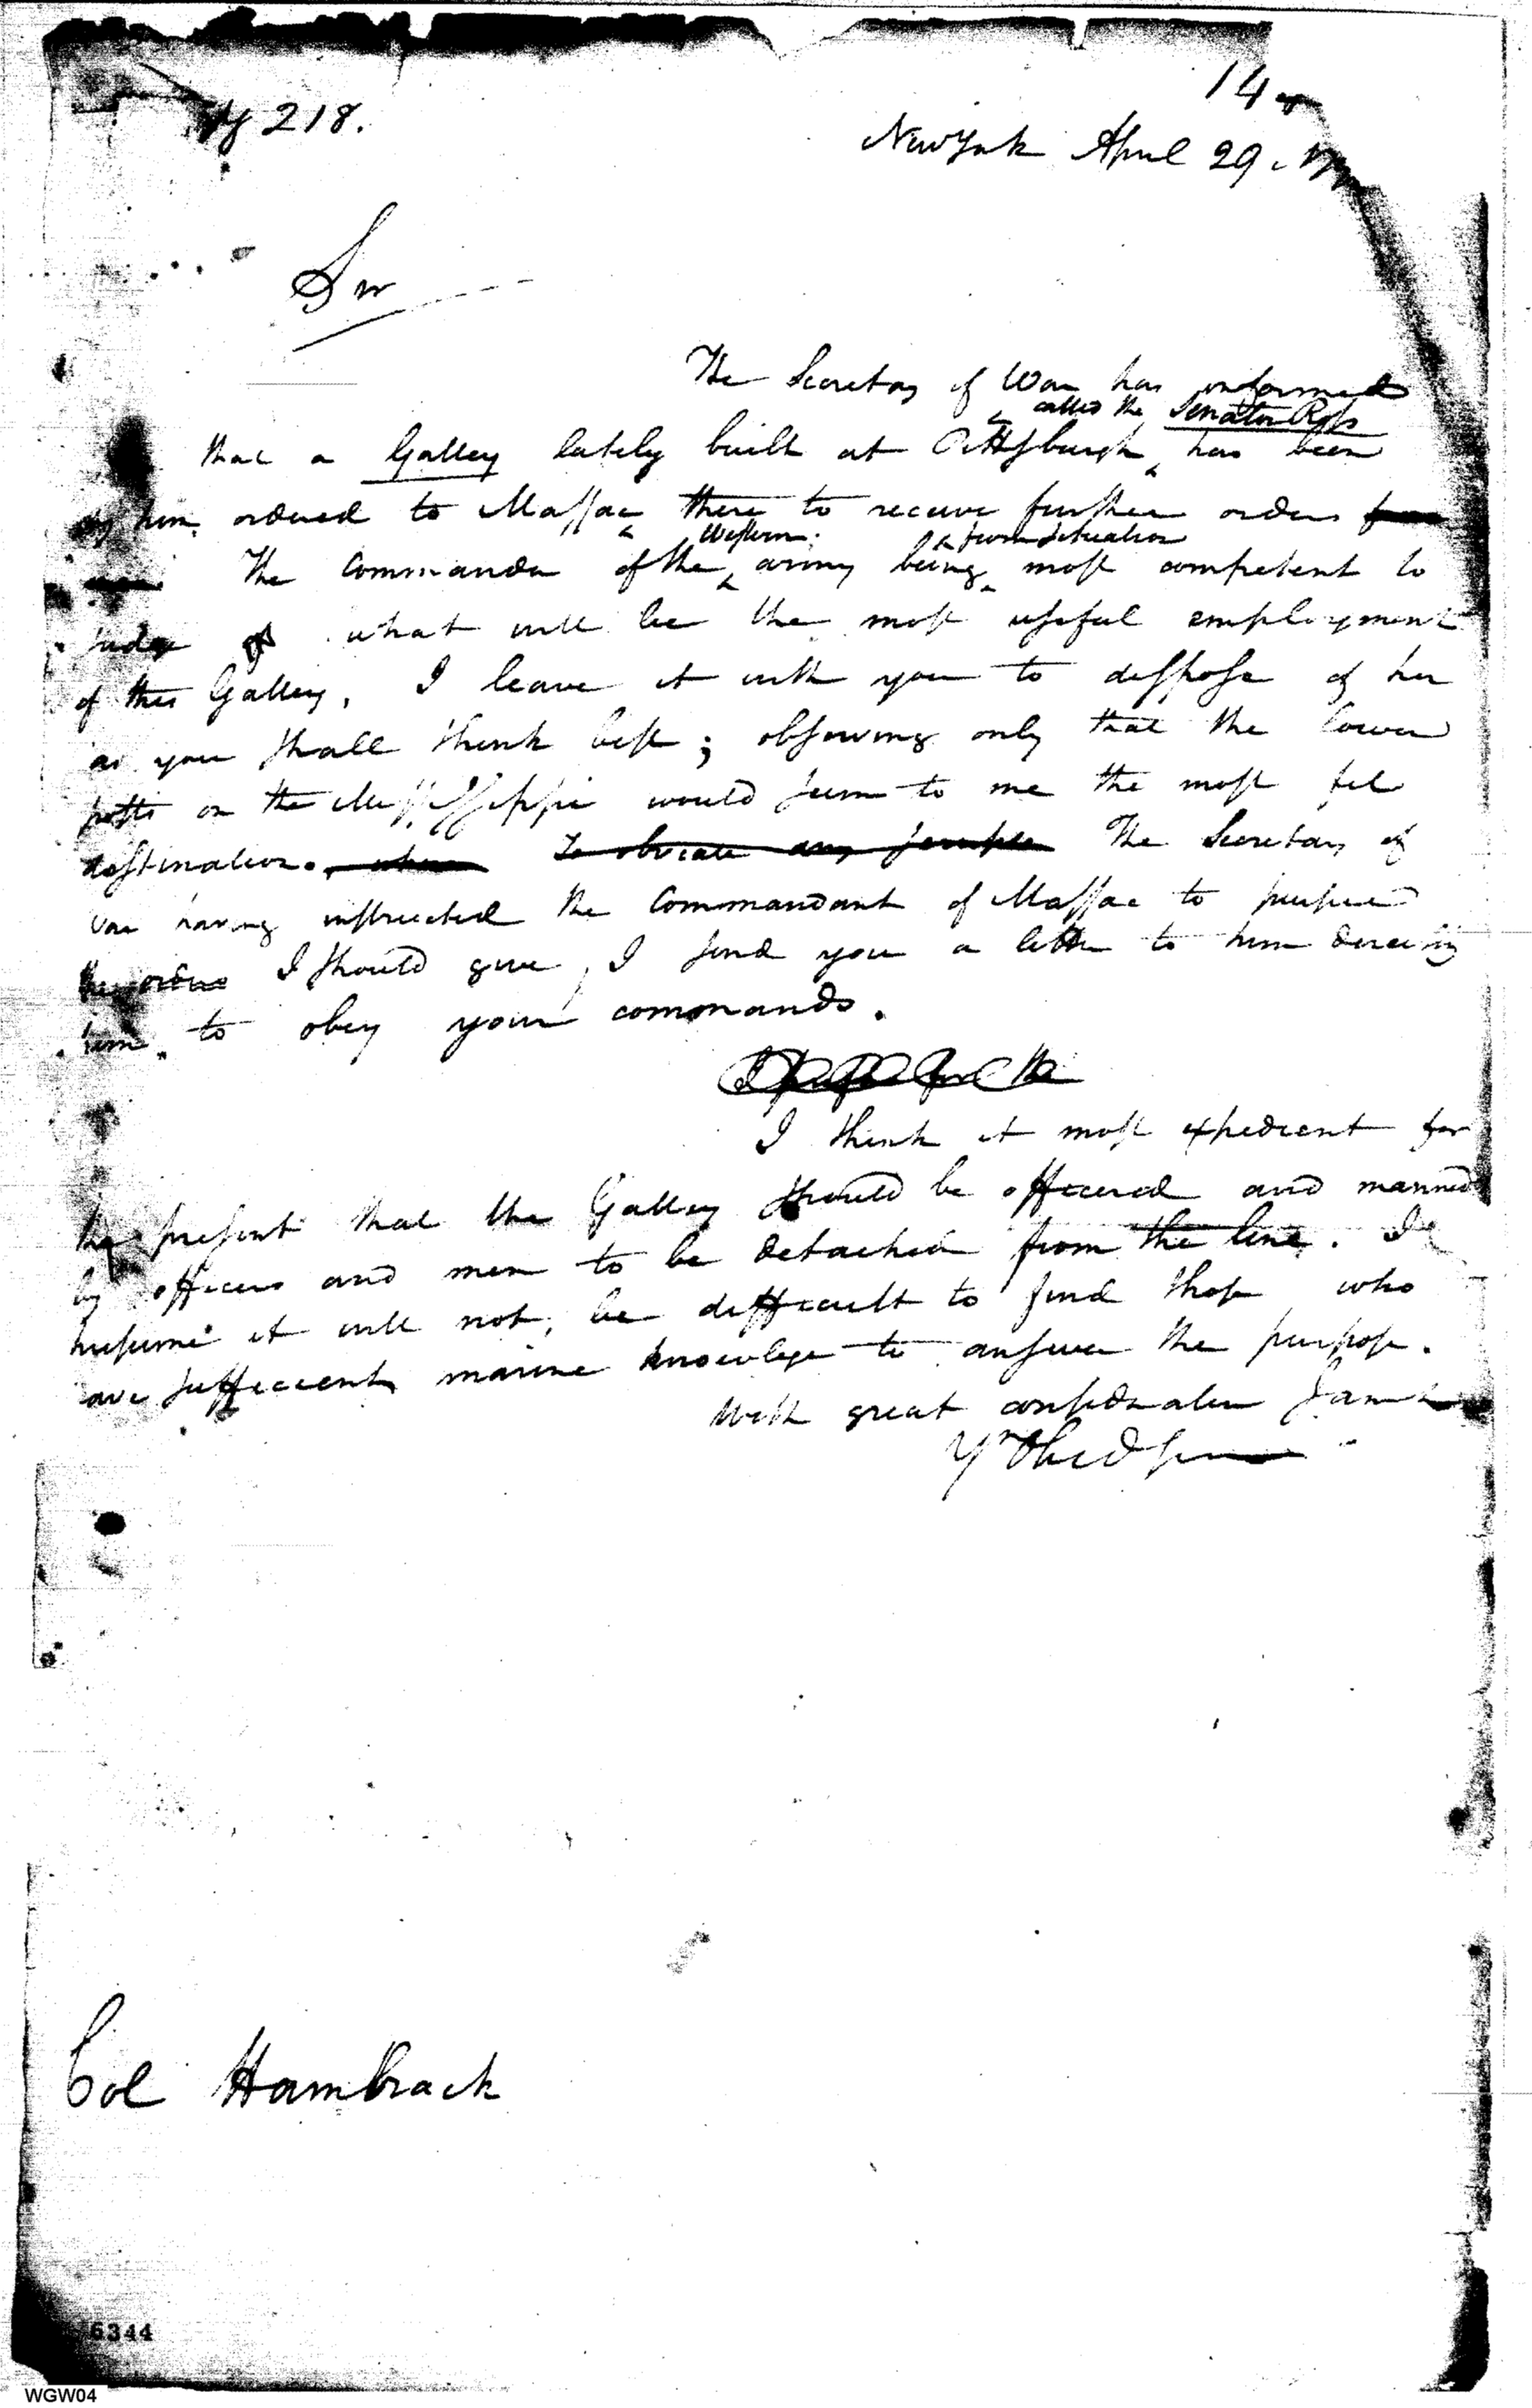 218.
14
New York April 29.
Sir
The Secretary of War has informed
called the Senator Ross
that a Galley lately built at Pittsburgh has been
by him ordered to Massac there to receive further orders
Western from situation
The Commander of the army being most competent to
judge of what will be the most useful employment
of this Galley, I leave it with you to dispose of her
as you shall think best; observing only that the lower
posts on the Mississippi would seem to me the most fit
destination. To obviate any scruple The Secretary of
War having instructed the Commandant of Massac to pursue
the orders I should give, I send you a letter to him directing
him to obey your commands.
the
I think it most expedient for
the present that the Galley should be officered and manned
by officers and men to be detached from the line. I
presume it will not, be difficult to find those who
have sufficient marine knowlege to answer the purpose.
With great consideration I am
Yr Obed ser
Col Hambrack
6344
WGW04